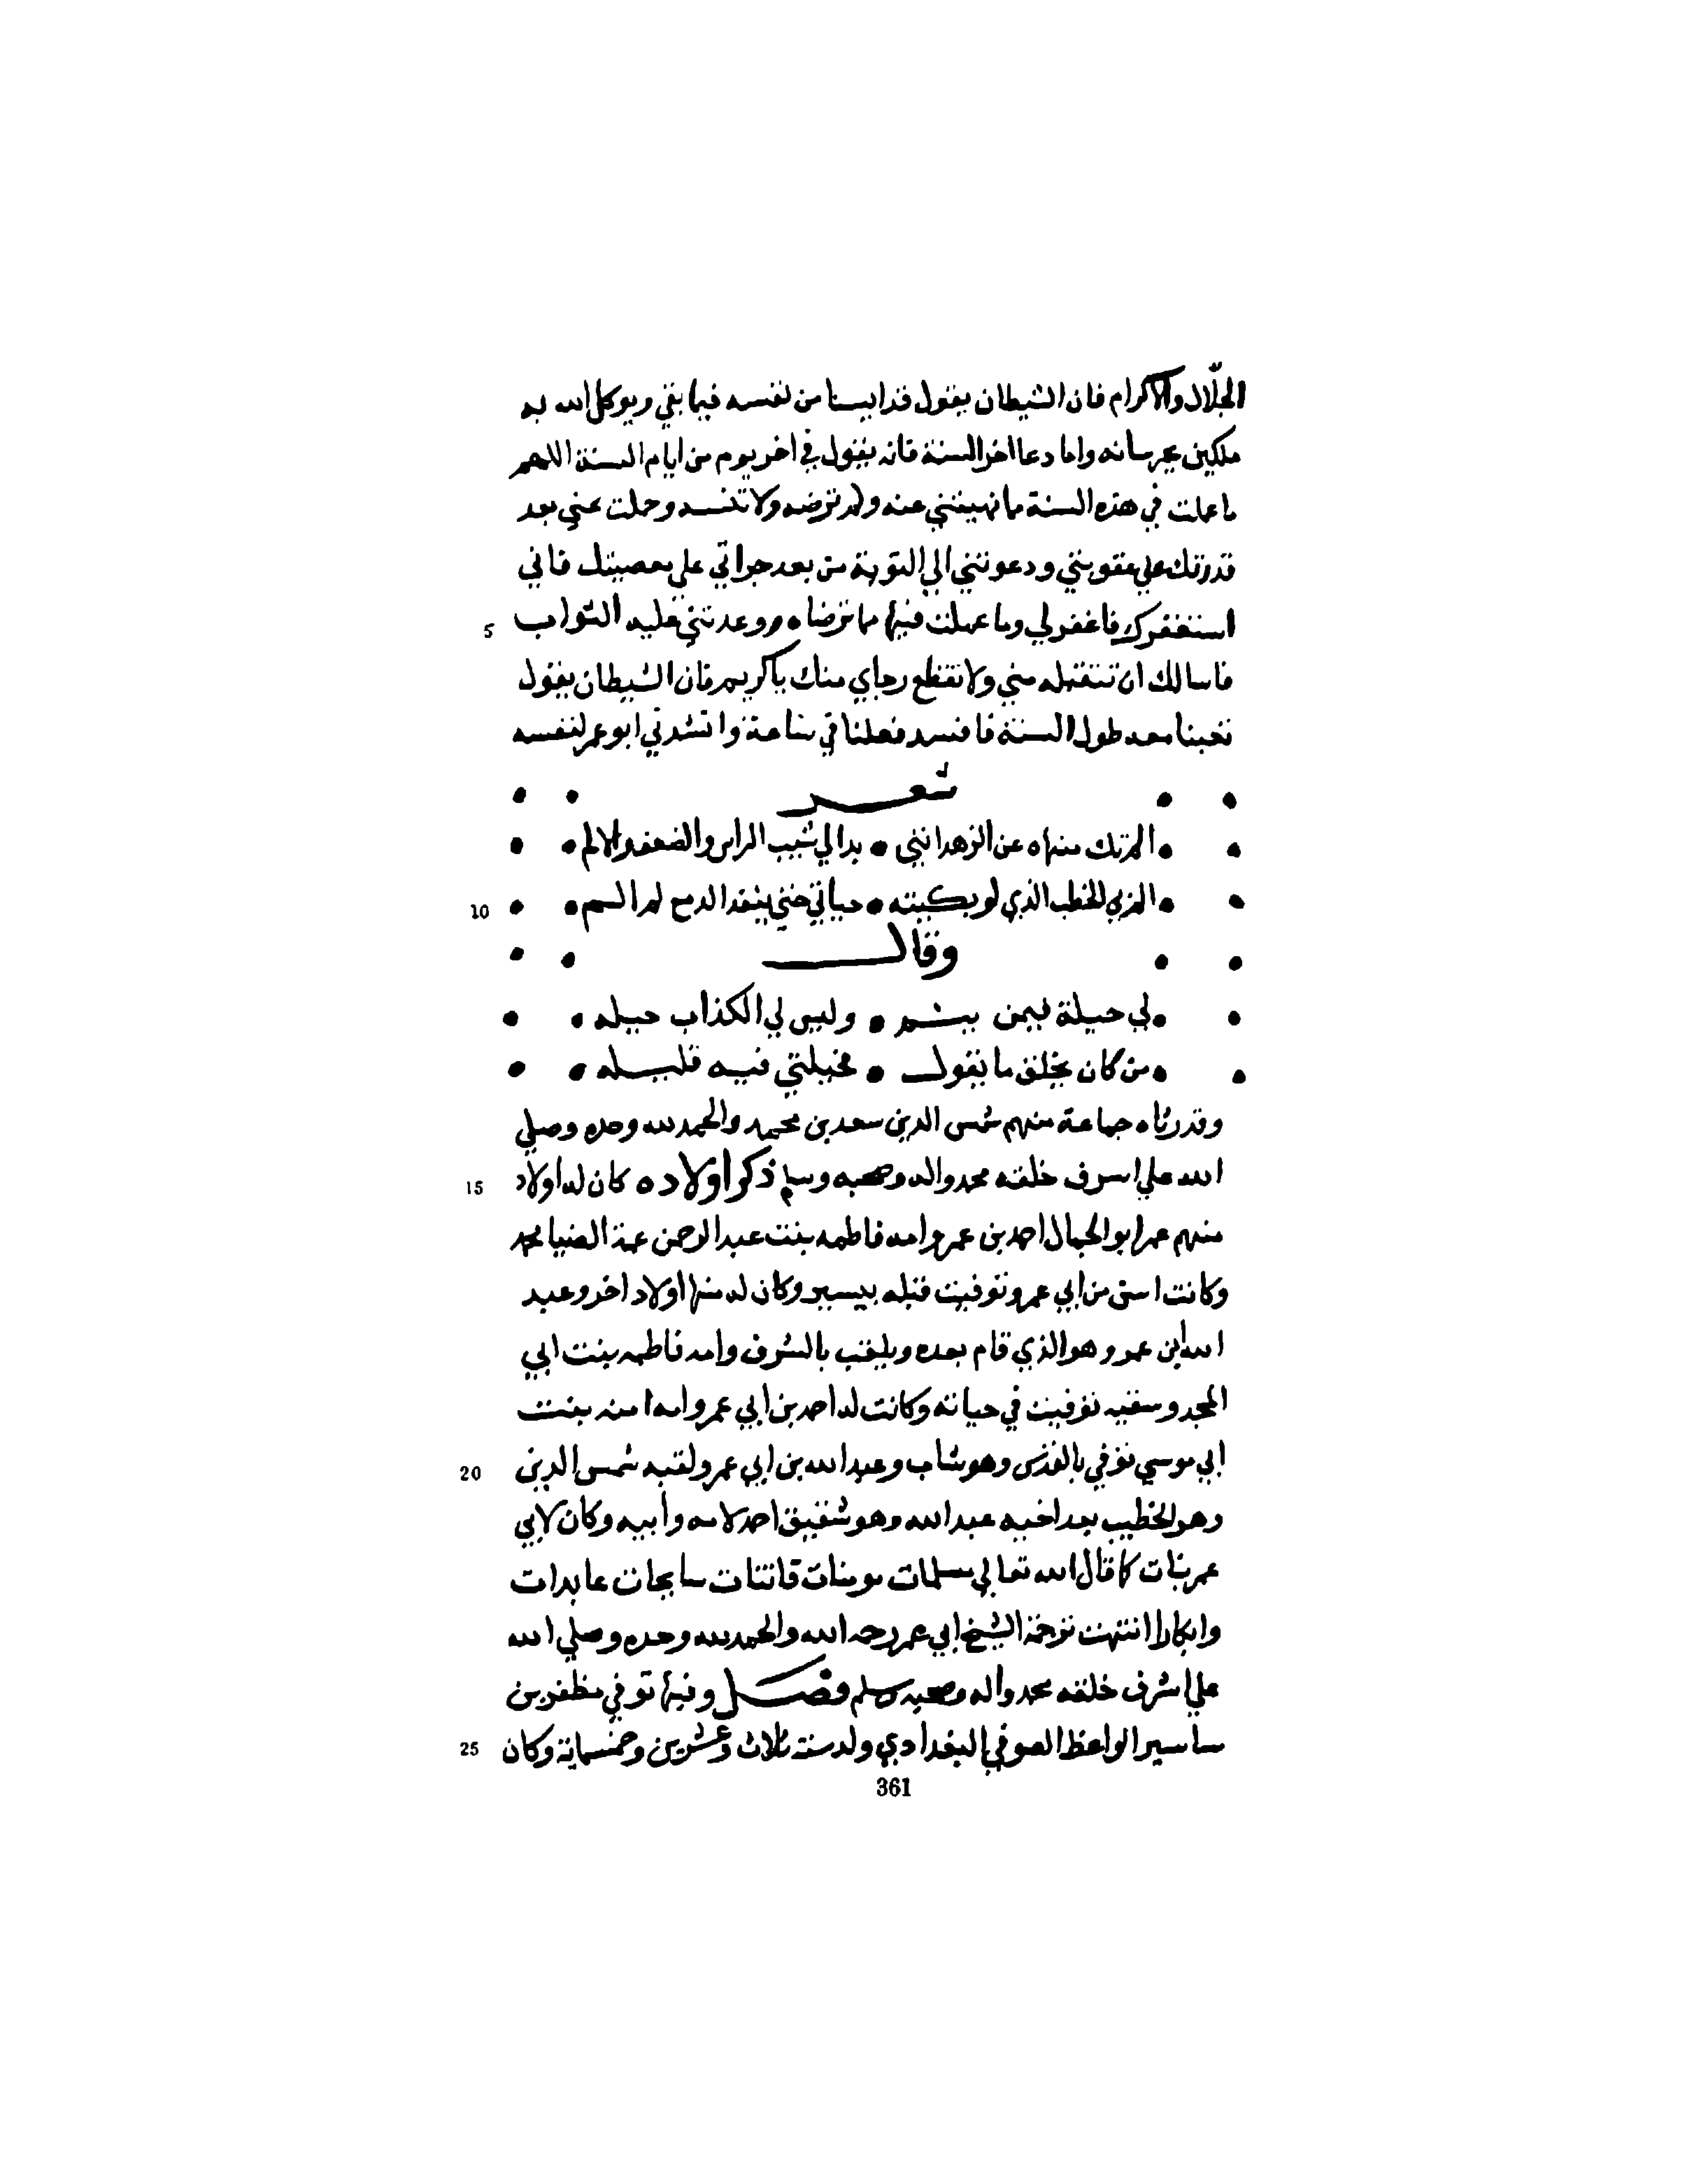 الجلال والاكرام فان الشيطان يقول قد ايسنا من نفسه فيما بقي ويوكل الله به
ملكين يحرسانه واما دعا اخر السنة فانه يقول في اخر يوم من ايام السنة اللهم
ما عملت في هذه السنة مما نهيتني عنه ولم ترضه ولا تنسه وحلمت عني بعد
قدرتك علي عقوبتي ودعوتني الي التوبة من بعد جراتي علي معصيتك فاني
5 استغفرك فاغفر لي وما عملت فيها مما ترضاه ووعدتني عليه الثواب
فاسالك ان تتقبله مني ولا تقطع رجاي منك يا كريم فان الشيطان يقول
تعبنا معه طول السنة فافسد فعلنا في ساعة وانشدني ابو عمر لنفسه
شعر
الم تك منهاه عن الزهد انني • بدا لي شيب الراس والضعف والالم
10 الم بي الخطب الذي لو بكيته • حياتي حتي ينفد الدمع لم الم
وقال
لي حيلة فيمن ينم • وليس لي الكذاب حيله
من كان يخلق ما يقول • فحيلتي فيه قليله
وقد رثاه جماعة منهم شمس الدين سعد بن محمد والحمد لله وحده وصلي
15 الله علي اسرف خلقه محمد واله وصحبه وسلم ذكر اولاده كان له اولاد
منهم عمر ابو الجمال احمد بن عمر وامه فاطمه بنت عبد الرحمن عمة الضيا محمد
وكانت اسن من ابي عمر وتوفيت قبله بيسير وكان له منها اولاد اخر وعبد
الله ابن عمر وهو الذي قام بعده ويلقب بالشرف وامه فاطمه بنت ابي
المجد وسفيه توفيت في حياته وكانت له احمد بن ابي عمر وامه امنه بنت
20 ابي موسي توفي بالقدس وهو شاب وعبد الله بن ابي عمر ولقبه شمس الدين
وهو الخطيب بعد اخيه عبد الله وهو شقيق احمد لامه وابيه وكان لابي
عمر بنات كما قال الله تعالي مسلمات مومنات قانتات سايحات عابدات
وابكارا انتهت ترجمة الشيخ ابي عمر رحمه الله والحمد لله وحده وصلي الله
علي اشرف خلقه محمد واله وصحبه وسلم فصل وفيها توفي مظفر بن
25 ساسير الواعظ الصوفي البغدادي ولد سنة ثلاث وعشرين وخمسماية وكان
361